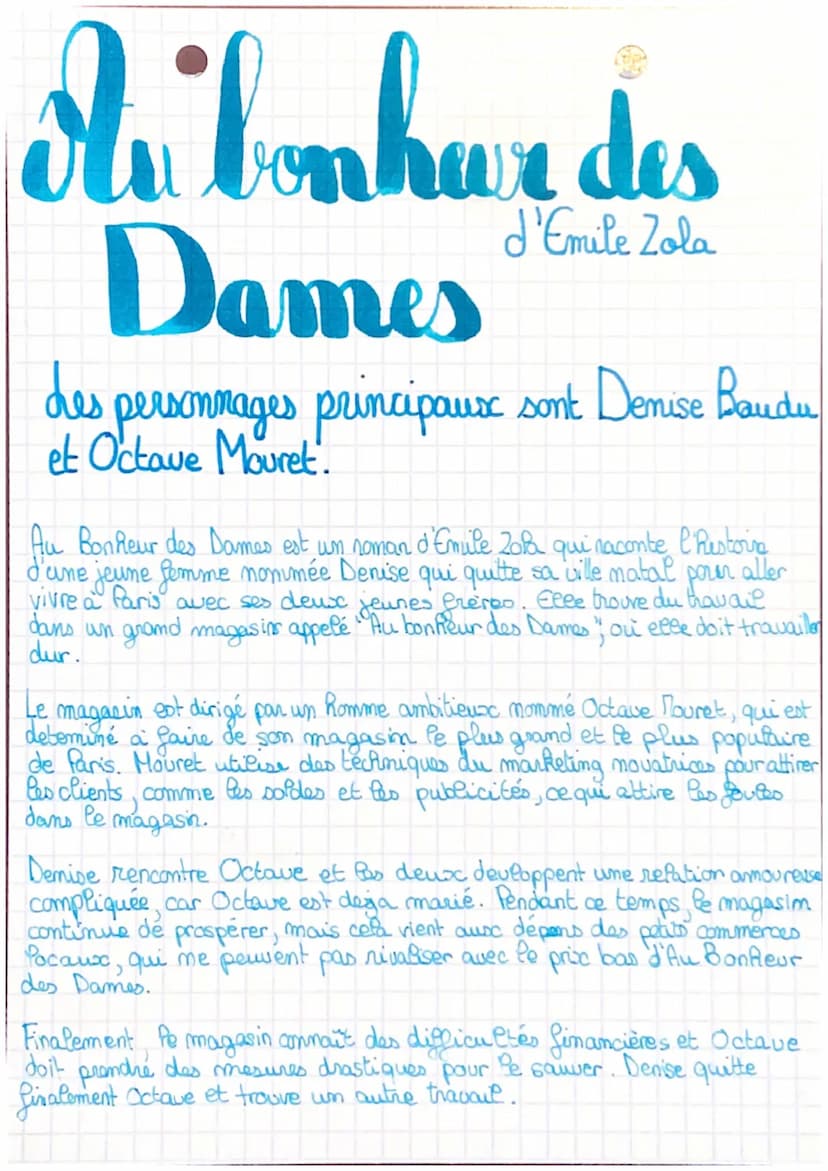 Au bonheur des
d'Emile Zola
Dames
Les personnages principaux sont Denise Baudu
et Octave Mouret.
Au Bonheur des Dames est un roman d'Emile Zola qui raconte l'histoire
d'une jeune femme nommée Denise qui quitte sa ville natal pour aller
vivre à Paris avec ses deux jeunes frères. Elle trouve du travail
dans un grand magasin appelé "Au bonheur des Dames", où elle doit travailler
dur.
Le magasin est dirigé par un homme ambitieux nommé Octave Mouret, qui est
determiné à faire de son magasin le plus grand et le plus populaire
de Paris. Mouret utilise des techniques du marketing novatrices pour attirer
les clients, comme les soldes et les publicités, ce qui attire les foules
dans le magasin.
Denise rencontre Octave et les deux developpent une relation amoureuse
compliquée, car Octave est deja marié. Pendant ce temps, le magasin
continue de prospérer, mais cela vient aux dépens des petits commerces
locaux, qui ne peuvent pas rivaliser avec le prix bas d'Au Bonheur
des Dames.
Finalement, le magasin connaît des difficultés financières et Octave
doit prendre des mesures drastiques pour le sauver. Denise quitte
finalement Octave et trouve un autre travail.